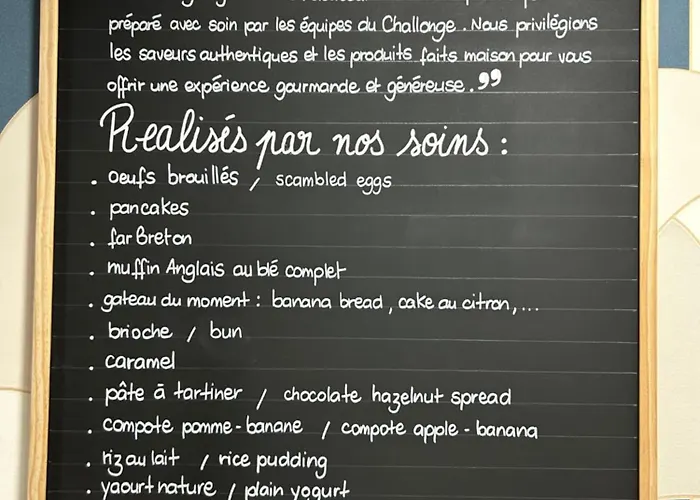 préparé avec soin par les équipes du Challonge. Nous privilégions
les saveurs authentiques et les produits faits maison pour vous
offrir une expérience gourmande et généreuse. ”
Realisés par nos soins :
. oeufs brouillés / scambled eggs
. pancakes
. far Breton
. muffin Anglais au blé complet
. gateau du moment : banana bread, cake au citron,...
. brioche / bun
. caramel
. pâte à tartiner / chocolate hazelnut spread
. compote pomme-banane / compote apple-banana
. riz au lait / rice pudding
. yaourt nature / plain yogurt